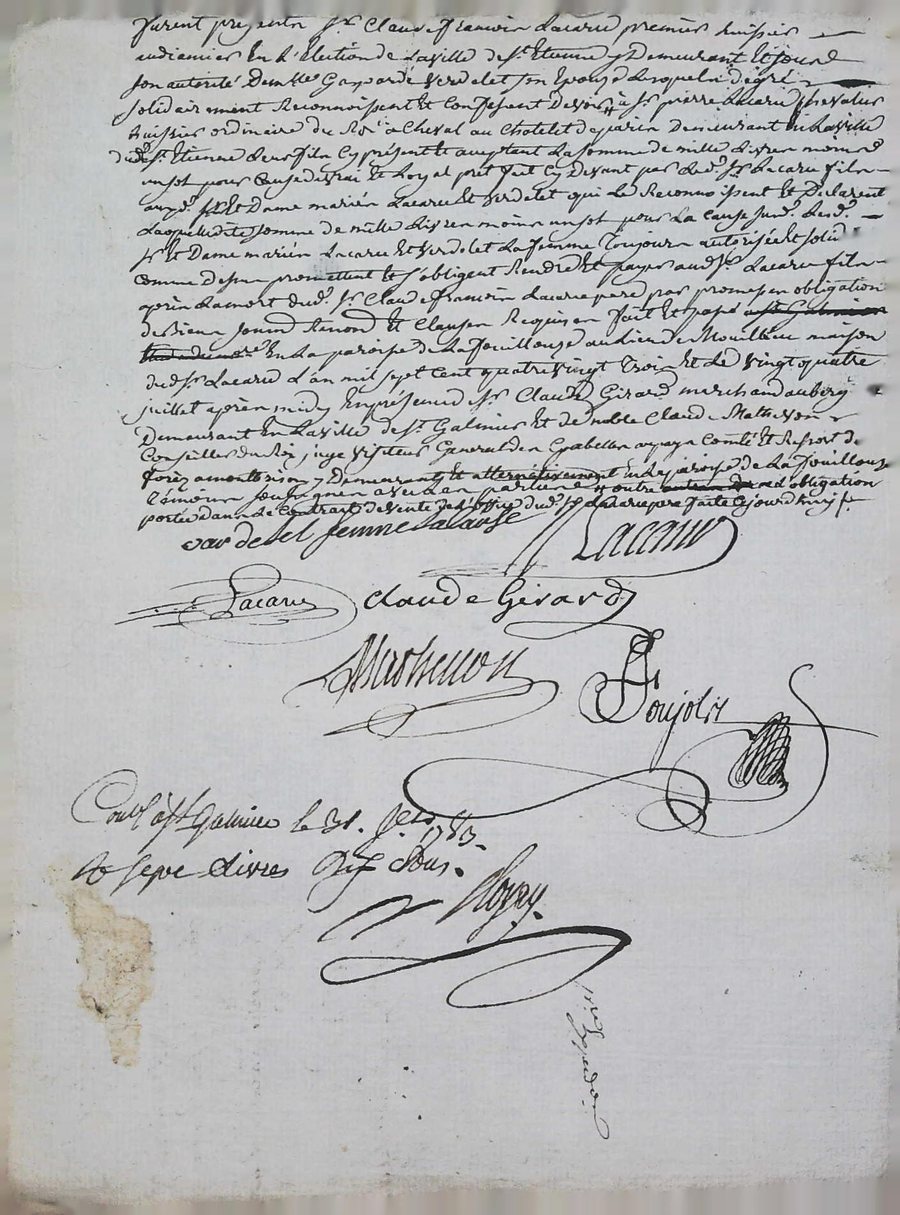 furent présents Sr. Claude François Lacarre premier huissier
audiancier En L'Election de La ville de St. Etienne y Demeurant Et sous
son autorité Demlle Gasparde Verdelet son Epouze Lesquels de gré
solidairement Reconnoissent Et Confessent Devoir à Sr. pierre Lacarre chevalier
huissier ordinaire du Roi a Cheval au Chatelet de paris Demeurant En La ville
de St. Etienne Leur fils Cy présent Et acceptant La somme de mille Livres moins
un sol pour Cause de vrai Et Loyal prêt fait Cy Devant par Led. Sr. Lacarre fils
auxd. Sr. Et Dame mariés Lacarre Et Verdelet qui Le Reconnoissent Et Déclarent
Laquelle ditte somme de mille Livres moins un sol pour La cause susd. Lesd.
Sr. Et Dame mariés Lacarre Et Verdelet La femme Toujours autorisée Et solid.
Comme dessus promettent Et s'obligent Rendre Et payer aud. Sr. Lacarre fils
après La mort dud. Sr. Claude François Lacarre pere par promesses obligation
de Biens soumis Renond. Et Clauses Requises fait Et passé
En La paroisse de La fouillouze au Lieu de Mouilleu maison
dud. Sr. Lacarre L'an mil sept Cent quatre vingt Trois Et Le vingt quatre
juillet après midy En présence de Sr. Claude Girard marchand auberg.
Demeurant En La ville de St. Galmier Et de noble Claude Mathevon
Conseiller du Roi, juge visiteur General des Gabelles au pays Comté Et Ressort de
forez a montbrison y Demeurant Et alternativement En La paroisse de La fouillouze
témoins soussignés avec Les parties outre obligation
portée dans Le Contrat de vente d'office dud. Sr. Lacarre pere faite Cejourd'huy
vardelet femme lacarre
Lacarre
Lacarre
Claude Girard
Mathevon
Poujol
Conlé à St Galmier le 31. Jet. 1783.
R. sept Livres Dix Sous.